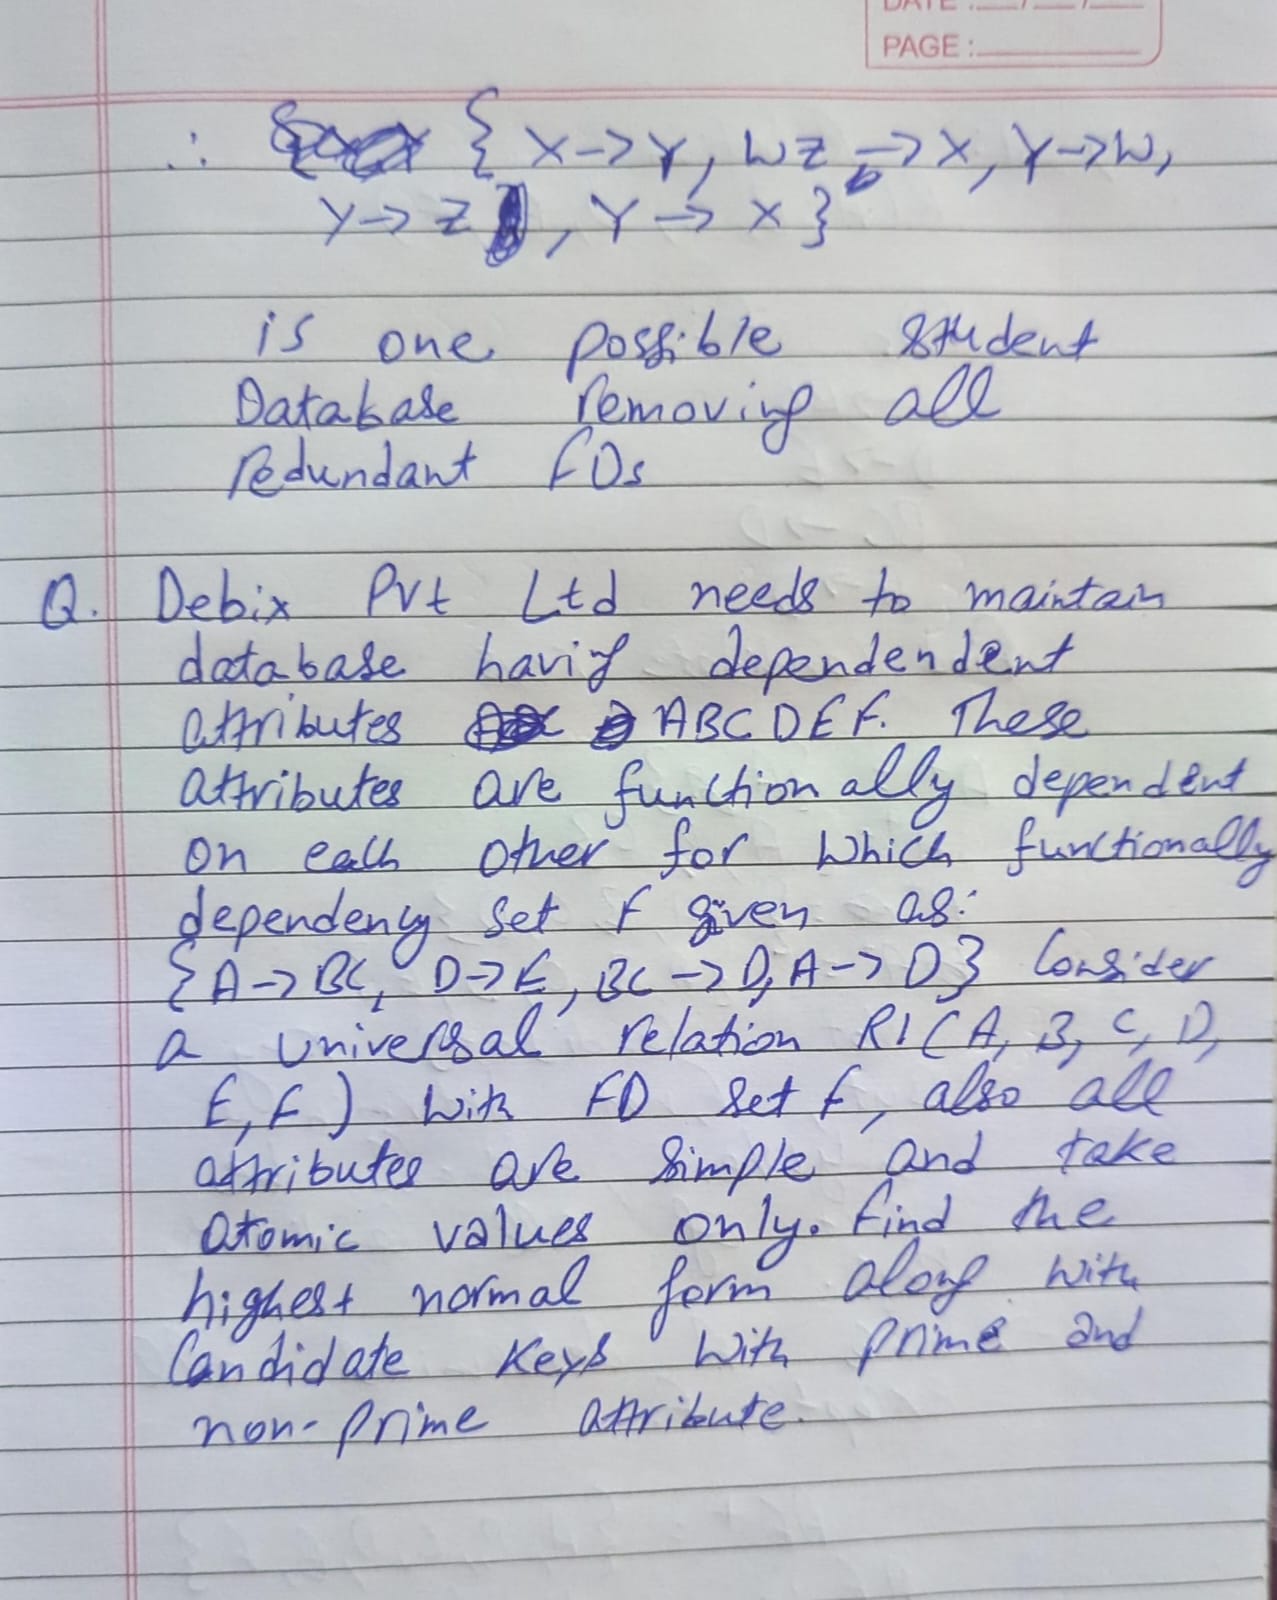 DATE :__/__/__
PAGE :
∴ { X->Y, WZ -> X, Y->W,
Y-> Z , Y-> X }
is one possible student
Database removing all
redundant FDs
Q. Debix Pvt Ltd needs to maintain
database havig dependendent
attributes ABCDEF. These
attributes are functionally dependent
on each other for which functionally
dependency set F given as:
{ A->BC, D->E, BC->D, A->D} Consider
a universal relation R1 ( A, B, C, D,
E, F ) with FD set F, also all
attributes are simple and take
atomic values only. Find the
highest normal form along with
Candidate Keys with prime and
non-prime attribute.